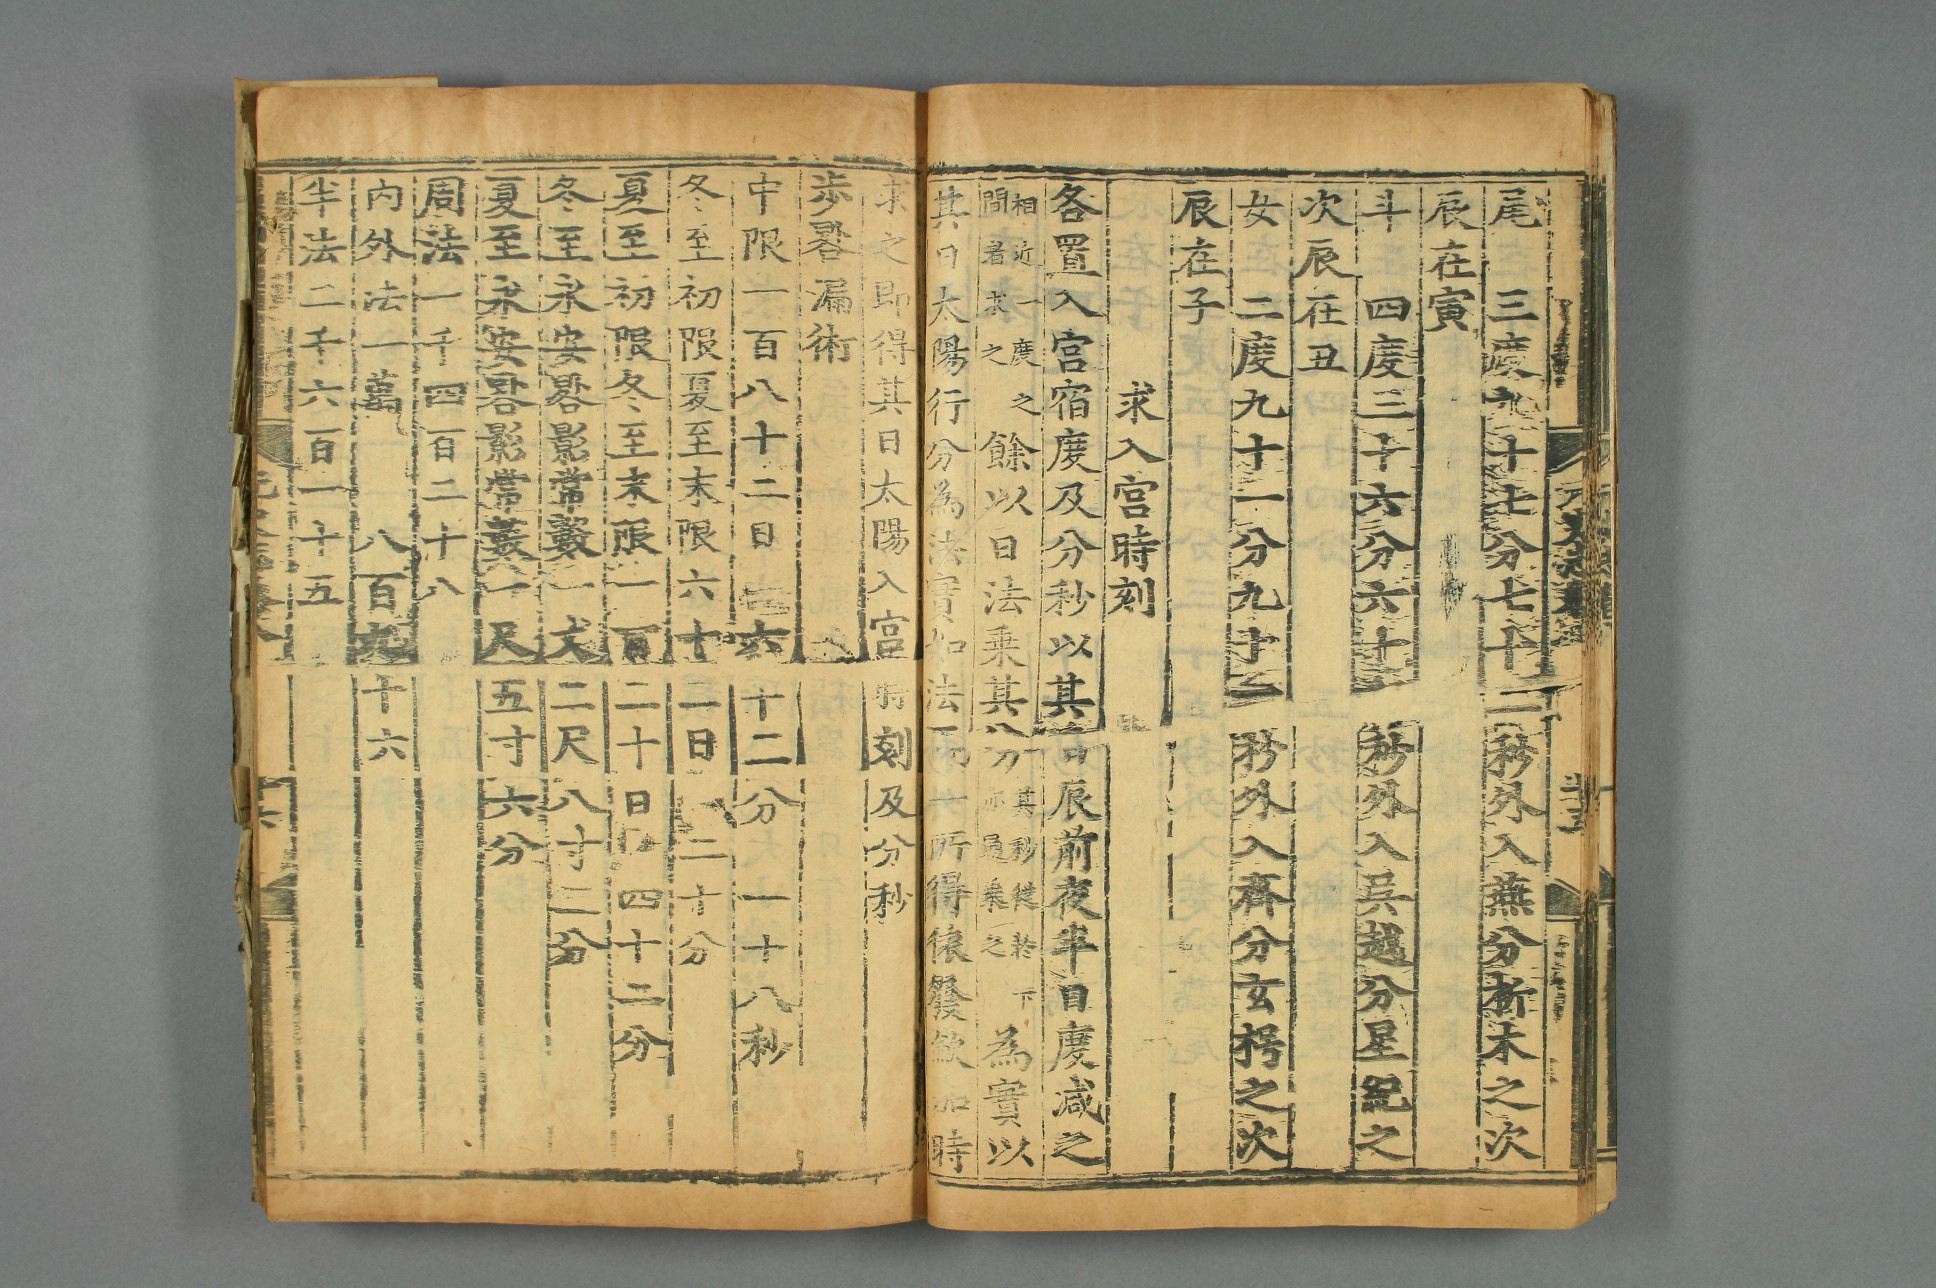 尾　三度九十七分七十二秒外入燕分析木之次
辰在寅
斗　四度三十六分六十　秒外入吳越分星紀之
次辰在丑
女　二度九十一分九十一秒外入齊分玄枵之次
辰在子
求入宮時刻
各置入宮宿度及分秒以其日辰前夜半日度減之
相近一度之
間者求之
餘以日法乗其分
其秒從於下
亦通乗之
為實以
其日太陽行分為法實如法而一所得依發斂加時
求之即得其日太陽入宮時刻及分秒
步晷漏術
中限一百八十二日六十二分一十八秒
冬至初限夏至末限六十二日二十分
夏至初限冬至末限一百二十日四十二分
冬至永安晷影常數一丈二尺八寸三分
夏至永安晷影常數一尺五寸六分
周法一千四百二十八
內外法一萬八百九十六
半法二千六百一十五